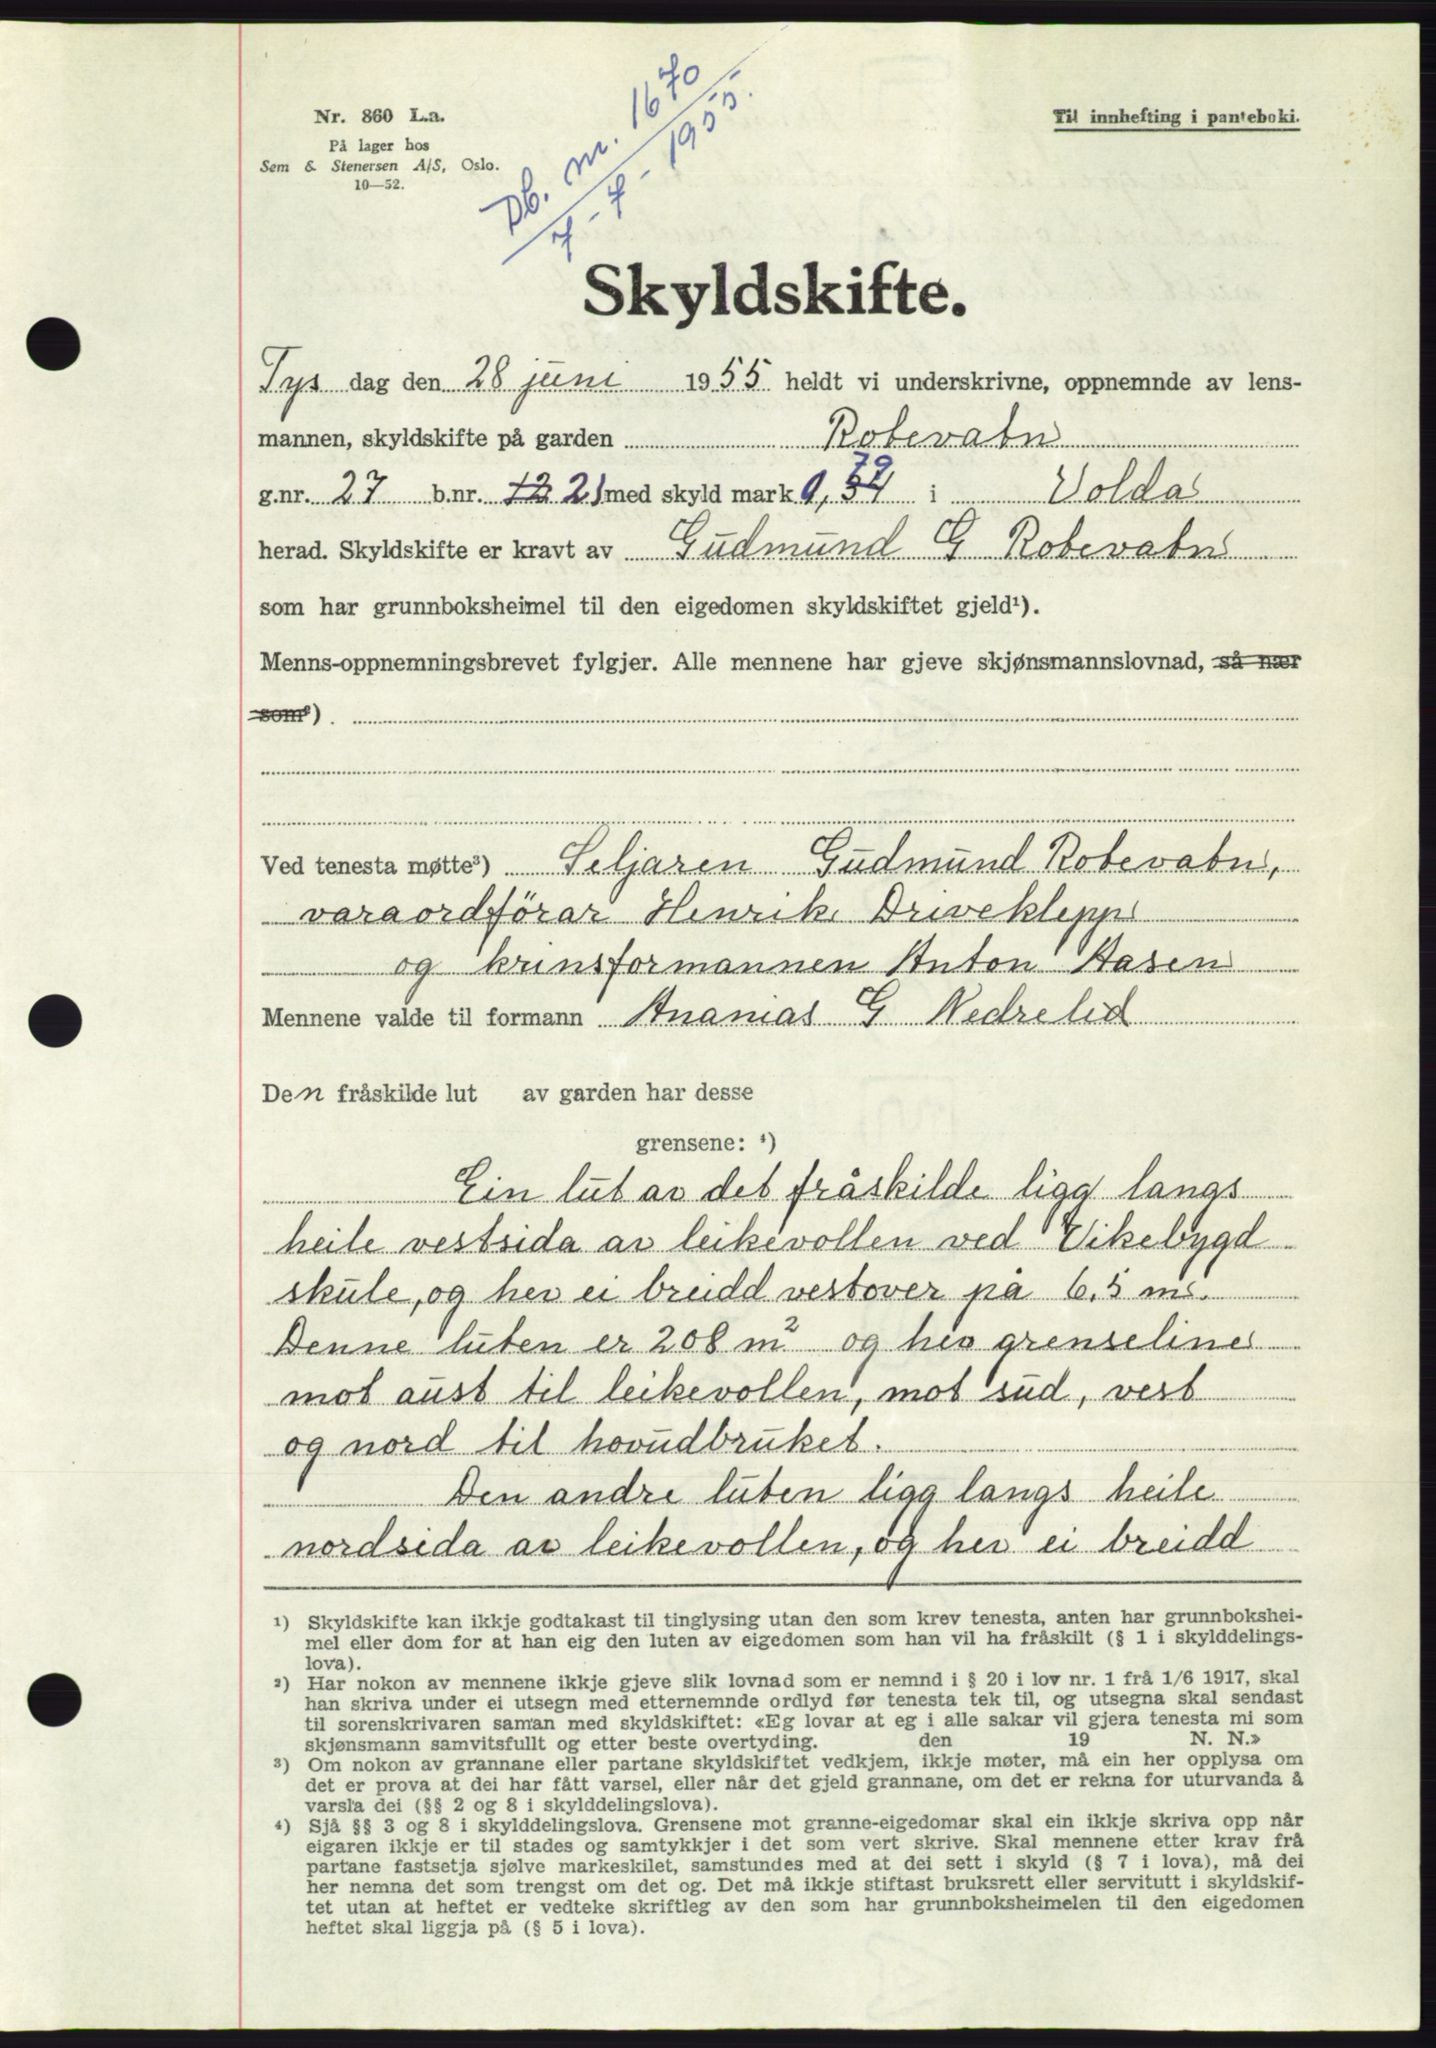 Nr. 860 L.a.
På lager hos
Sem & Stenersen A/S, Oslo.
10—52.
Db. nr. 1670
7 - 7 - 1955.
Til innhefting i panteboki.
Skyldskifte.
Tys dag den 28 juni 1955 heldt vi underskrivne, oppnemnde av lens-
mannen, skyldskifte på garden Rotevatn
g.nr. 27 b.nr. 12 21 med skyld mark 0, i Volda
herad. Skyldskifte er kravt av Gudmund G Rotevatn
som har grunnboksheimel til den eigedomen skyldskiftet gjeld¹).
Menns-oppnemningsbrevet fylgjer. Alle mennene har gjeve skjønsmannslovnad, så nær
som²).
Ved tenesta møtte³) Seljaren Gudmund Rotevatn,
varaordförar Henrik Driveklepp
og krinsformannen Anton Aasen
Mennene valde til formann Ananias G Nedrelid
Den fråskilde lut av garden har desse
grensene: ⁴)
Ein lut av det fråskilde ligg langs
heile vestsida av leikevollen ved Vikebygd
skule, og hev ei breidd vestover på 6,5 m.
Denne luten er 208 m² og hev grenseline
mot aust til leikevollen, mot sud, vest
og nord til hovudbruket.
Den andre luten ligg langs heile
nordsida av leikevollen, og hev ei breidd
¹) Skyldskifte kan ikkje godtakast til tinglysing utan den som krev tenesta, anten har grunnbokshei-
mel eller dom for at han eig den luten av eigedomen som han vil ha fråskilt (§ 1 i skylddelings-
lova).
²) Har nokon av mennene ikkje gjeve slik lovnad som er nemnd i § 20 i lov nr. 1 frå 1/6 1917, skal
han skriva under ei utsegn med etternemnde ordlyd før tenesta tek til, og utsegna skal sendast
til sorenskrivaren saman med skyldskiftet: «Eg lovar at eg i alle sakar vil gjera tenesta mi som
skjønsmann samvitsfullt og etter beste overtyding. den 19 N. N.»
³) Om nokon av grannane eller partane skyldskiftet vedkjem, ikkje møter, må ein her opplysa om
det er prova at dei har fått varsel, eller når det gjeld grannane, om det er rekna for uturvanda å
varsla dei (§§ 2 og 8 i skylddelingslova).
⁴) Sjå §§ 3 og 8 i skylddelingslova. Grensene mot granne-eigedomar skal ein ikkje skriva opp når
eigaren ikkje er til stades og samtykkjer i det som vert skrive. Skal mennene etter krav frå
partane fastsetja sjølve markeskilet, samstundes med at dei sett i skyld (§ 7 i lova), må dei
her nemna det som trengst om det og. Det må ikkje stiftast bruksrett eller servitutt i skyldskif-
tet utan at heftet er vedteke skriftleg av den som har grunnboksheimelen til den eigedomen
heftet skal liggja på (§ 5 i lova).